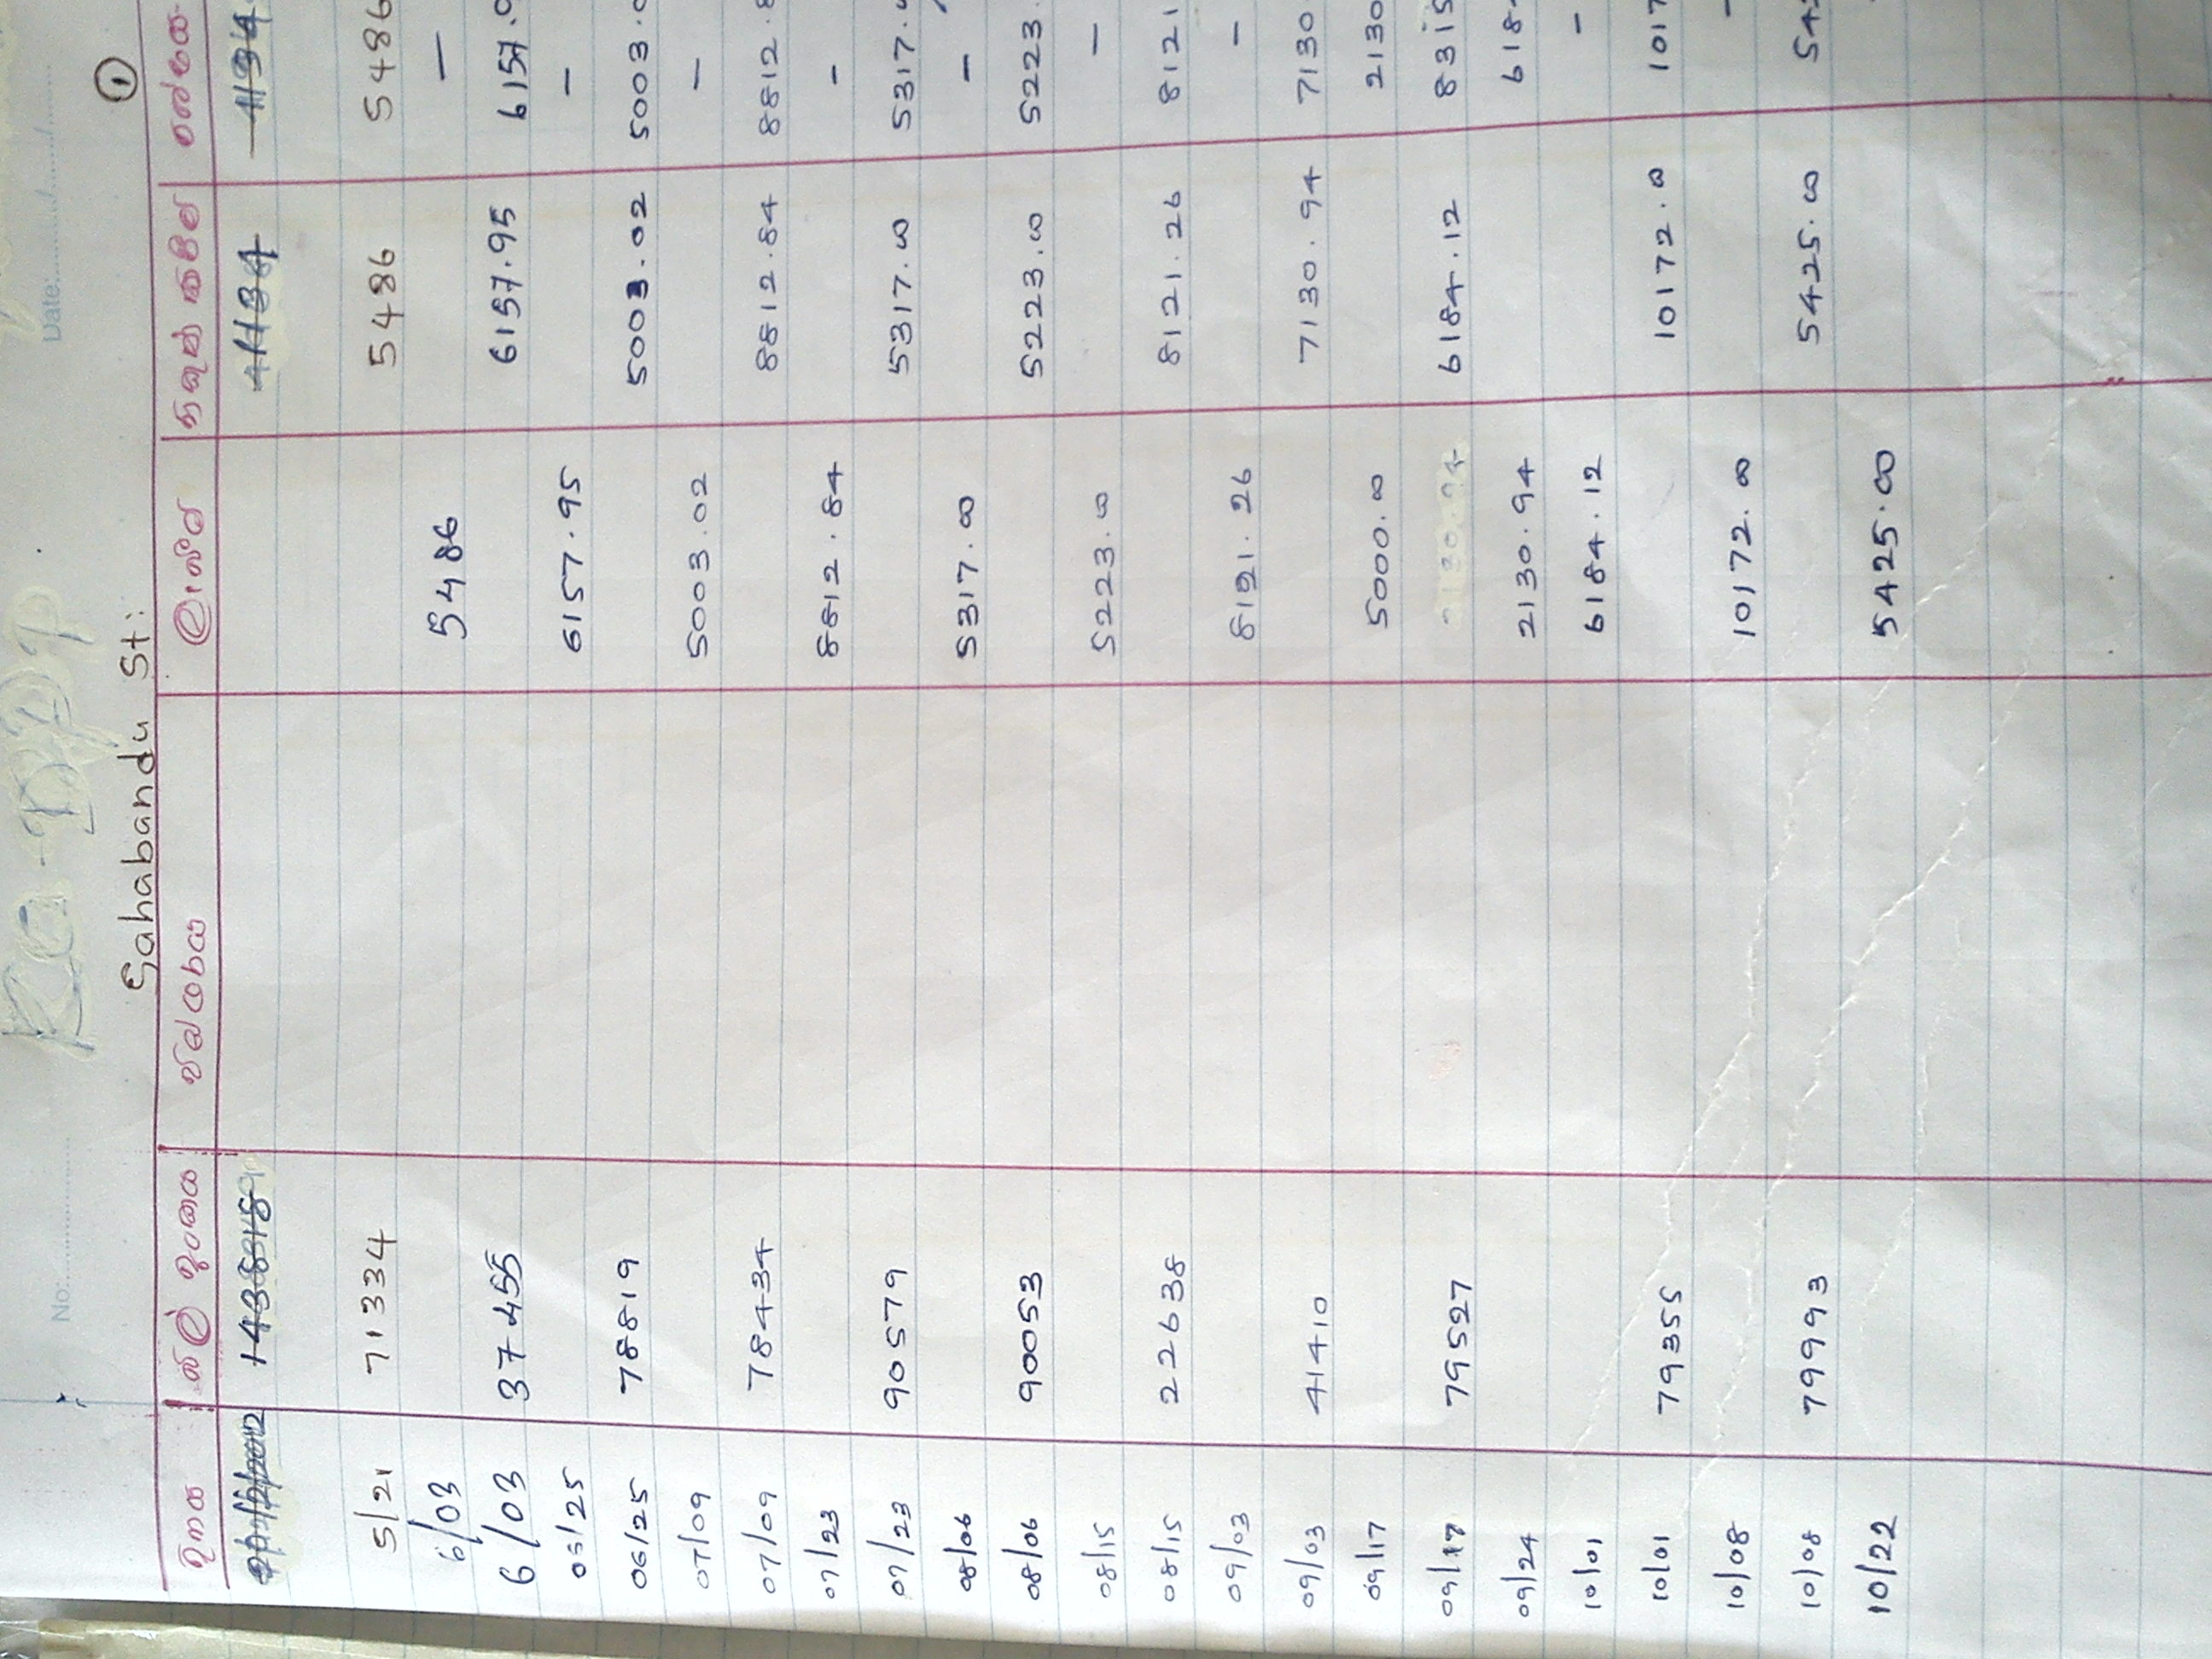 No:.................... Ka-DPP Date:........../......../.........
Sahabandu St: 1
දිනය බිල් අංකය විස්තරය ලැබීම් නිකුත් කිරීම් ශේෂය
143818 1134 1134
5/21 71334 5486 5486
6/03 5486 —
6/03 37455 6157.95 6157.9
06/25 6157.95 –
06/25 78819 5003.02 5003.0
07/09 5003.02 –
07/09 78434 8812.84 8812.8
07/23 8812.84 –
07/23 90579 5317.00 5317.
08/06 5317.00 –
08/06 90053 5223.00 5223.
08/15 5223.00 –
08/15 22638 8121.26 8121
09/03 8121.26 –
09/03 41410 7130.94 7130
09/17 5000.00 2130
09/17 79527 2130.94 6184.12 8315
09/24 2130.94 6184
10/01 6184.12 –
10/01 79355 10172.00 1017
10/08 10172.00 –
10/08 79993 5425.00 542
10/22 5425.00